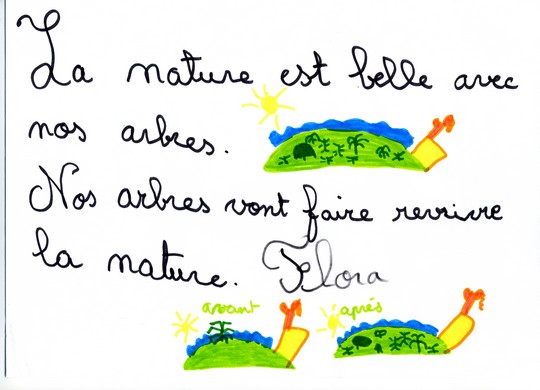 La nature est belle avec
nos arbres.
Nos arbres vont faire revivre
la nature. Flora
avant après